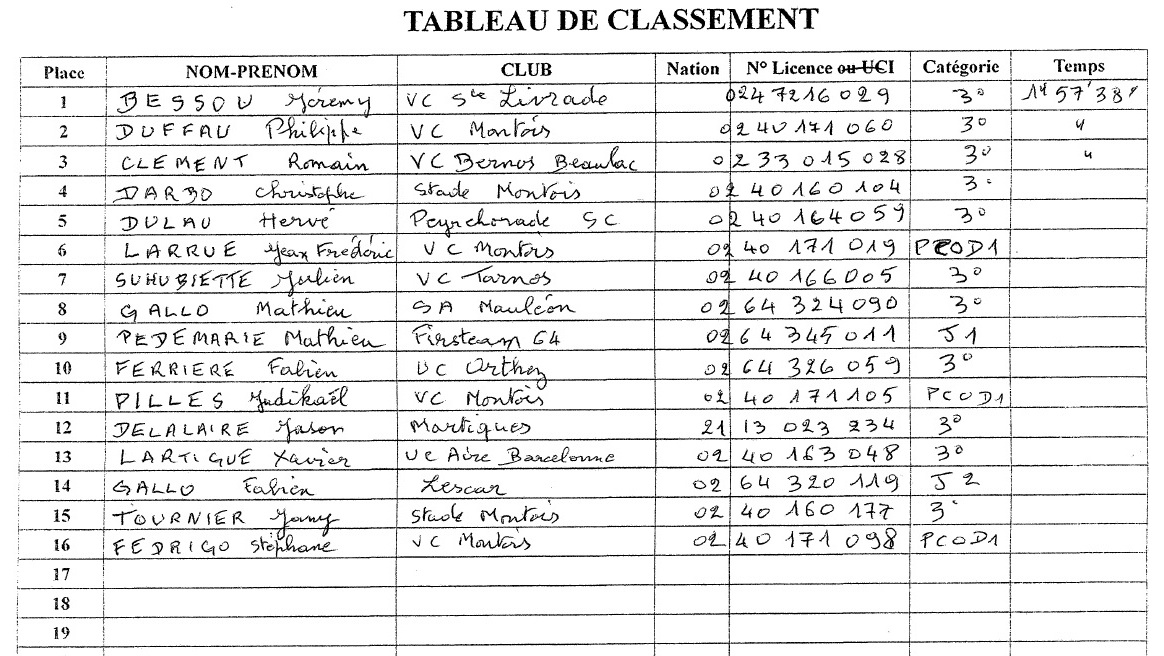 TABLEAU DE CLASSEMENT
Place NOM-PRENOM CLUB Nation N° Licence ou UCI Catégorie Temps
1 BESSOU Jéremy VC Ste Livrade 02 47 216 029 3° 1H 57'38"
2 DUFFAU Philippe VC Montois 02 40 171 060 3° "
3 CLEMENT Romain VC Bernos Beaulac 02 33 015 028 3° "
4 DARBO Christophe Stade Montois 02 40 160 104 3°
5 DULAU Hervé Peyrehorade SC 02 40 164 059 3°
6 LARRUE Jean Frédéric VC Montois 02 40 171 019 PCOD1
7 SUHUBIETTE Julien VC Tarnos 02 40 166 005 3°
8 GALLO Mathieu SA Mauléon 02 64 324 090 3°
9 PEDEMARIE Mathieu Firsteam 64 02 64 345 011 J1
10 FERRIERE Fabien UC Orthez 02 64 326 059 3°
11 PILLES Judikaël VC Montois 02 40 171 105 PCOD1
12 DELALAIRE Jason Martigues 21 13 023 234 3°
13 LARTIGUE Xavier UC Aire Barcelonne 02 40 163 048 3°
14 GALLO Fabien Lescar 02 64 320 119 J2
15 TOURNIER Jamy Stade Montois 02 40 160 177 3°
16 FEDRIGO Stéphane VC Montois 02 40 171 098 PCOD1
17
18
19